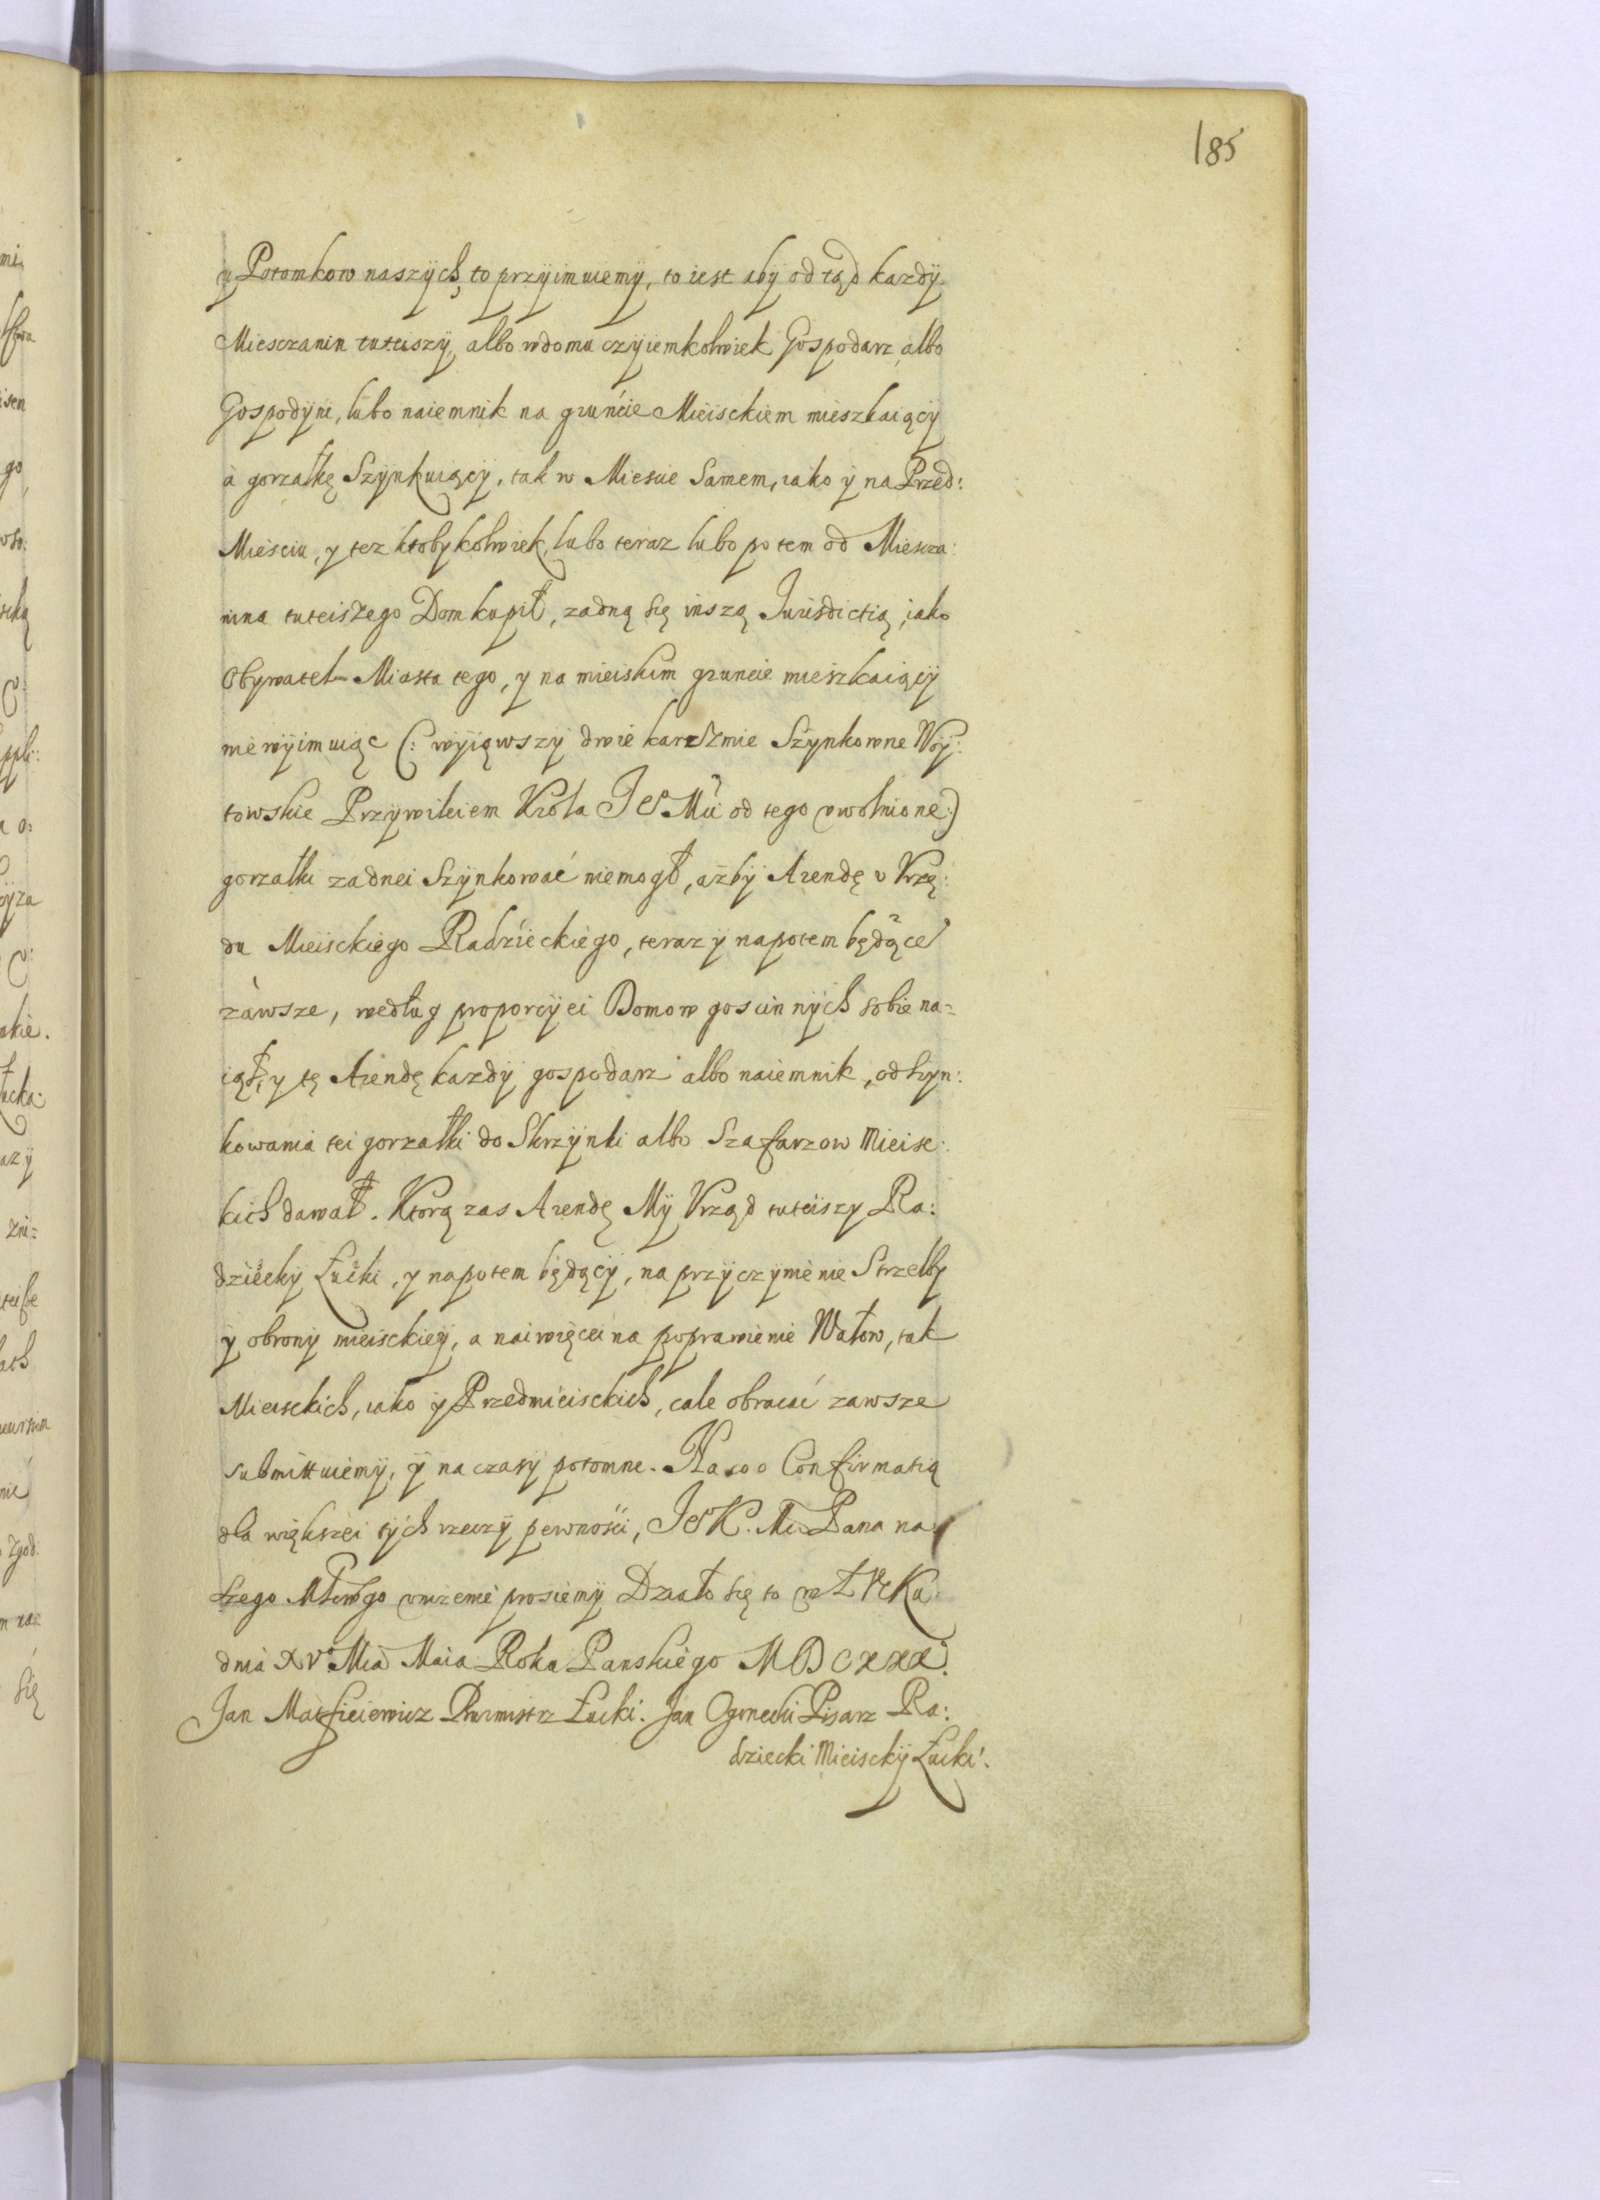 185
y Potomkow naszych, to przyimuiemy, to iest aby od tąd kazdy
Miesczanin tuteiszy, albo w domu czyiemkolwiek Gospodarz, albo
Gospodyni, lubo naiemnik na gruńcie Mieisckiem mieszkaiący
à gorzałkę Szynkuiący, tak w Miescie Samem, iako y na Przed:
Mieściu, y tez ktobykolwiek, lubo teraz lubo potem od Miescza:
nina tuteiszego Dom kupił, zadną się inszą Jurisdictią, iako
Obywatel Miasta tego, y na mieiskim gruncie mieszkaiący
nie wyimuiąc (: wyiąwszy dwie karczmie Szynkowne Woy:
towskie Przywileiem Krola Je° Mći od tego uwolnione:)
gorzałki zadnei Szynkować niemogł, ażby Arendę u Vrzę:
du Mieisckiego Radzieckiego, teraz y napotem będące°
záwsze, według proporcyei Domow goscinnych sobie na=
iął, y tę Arendę kazdy gospodarz albo naiemnik, od szyn:
kowania tei gorzałki do Skrzynki albo Szafarzow Mieisc:
kich dawał. Ktorą zas Arendę My Vrząd tuteiszy Ra:
dziecky Łucki, y napotem będący, na przyczynienie Strzelby
y obrony mieisckiey, a naiwięcei na poprawienie Wałow, tak
Mieisckich, iako y Przedmieisckich, cale obracać zawsze
submittuiemy, y na czasy potomne. Na co o Confirmatią
dla większei tych rzeczy pewnośći, Je° K. Mći Pana na:
szego Młśwgo unizenie prosiemy Działo się to w ŁVCKu
dnia XV° Mća Maia Roku Panskiego MDCXXX.
Jan Ogonecki Pisarz Ra:
dziecki Mieiscky Łucki.